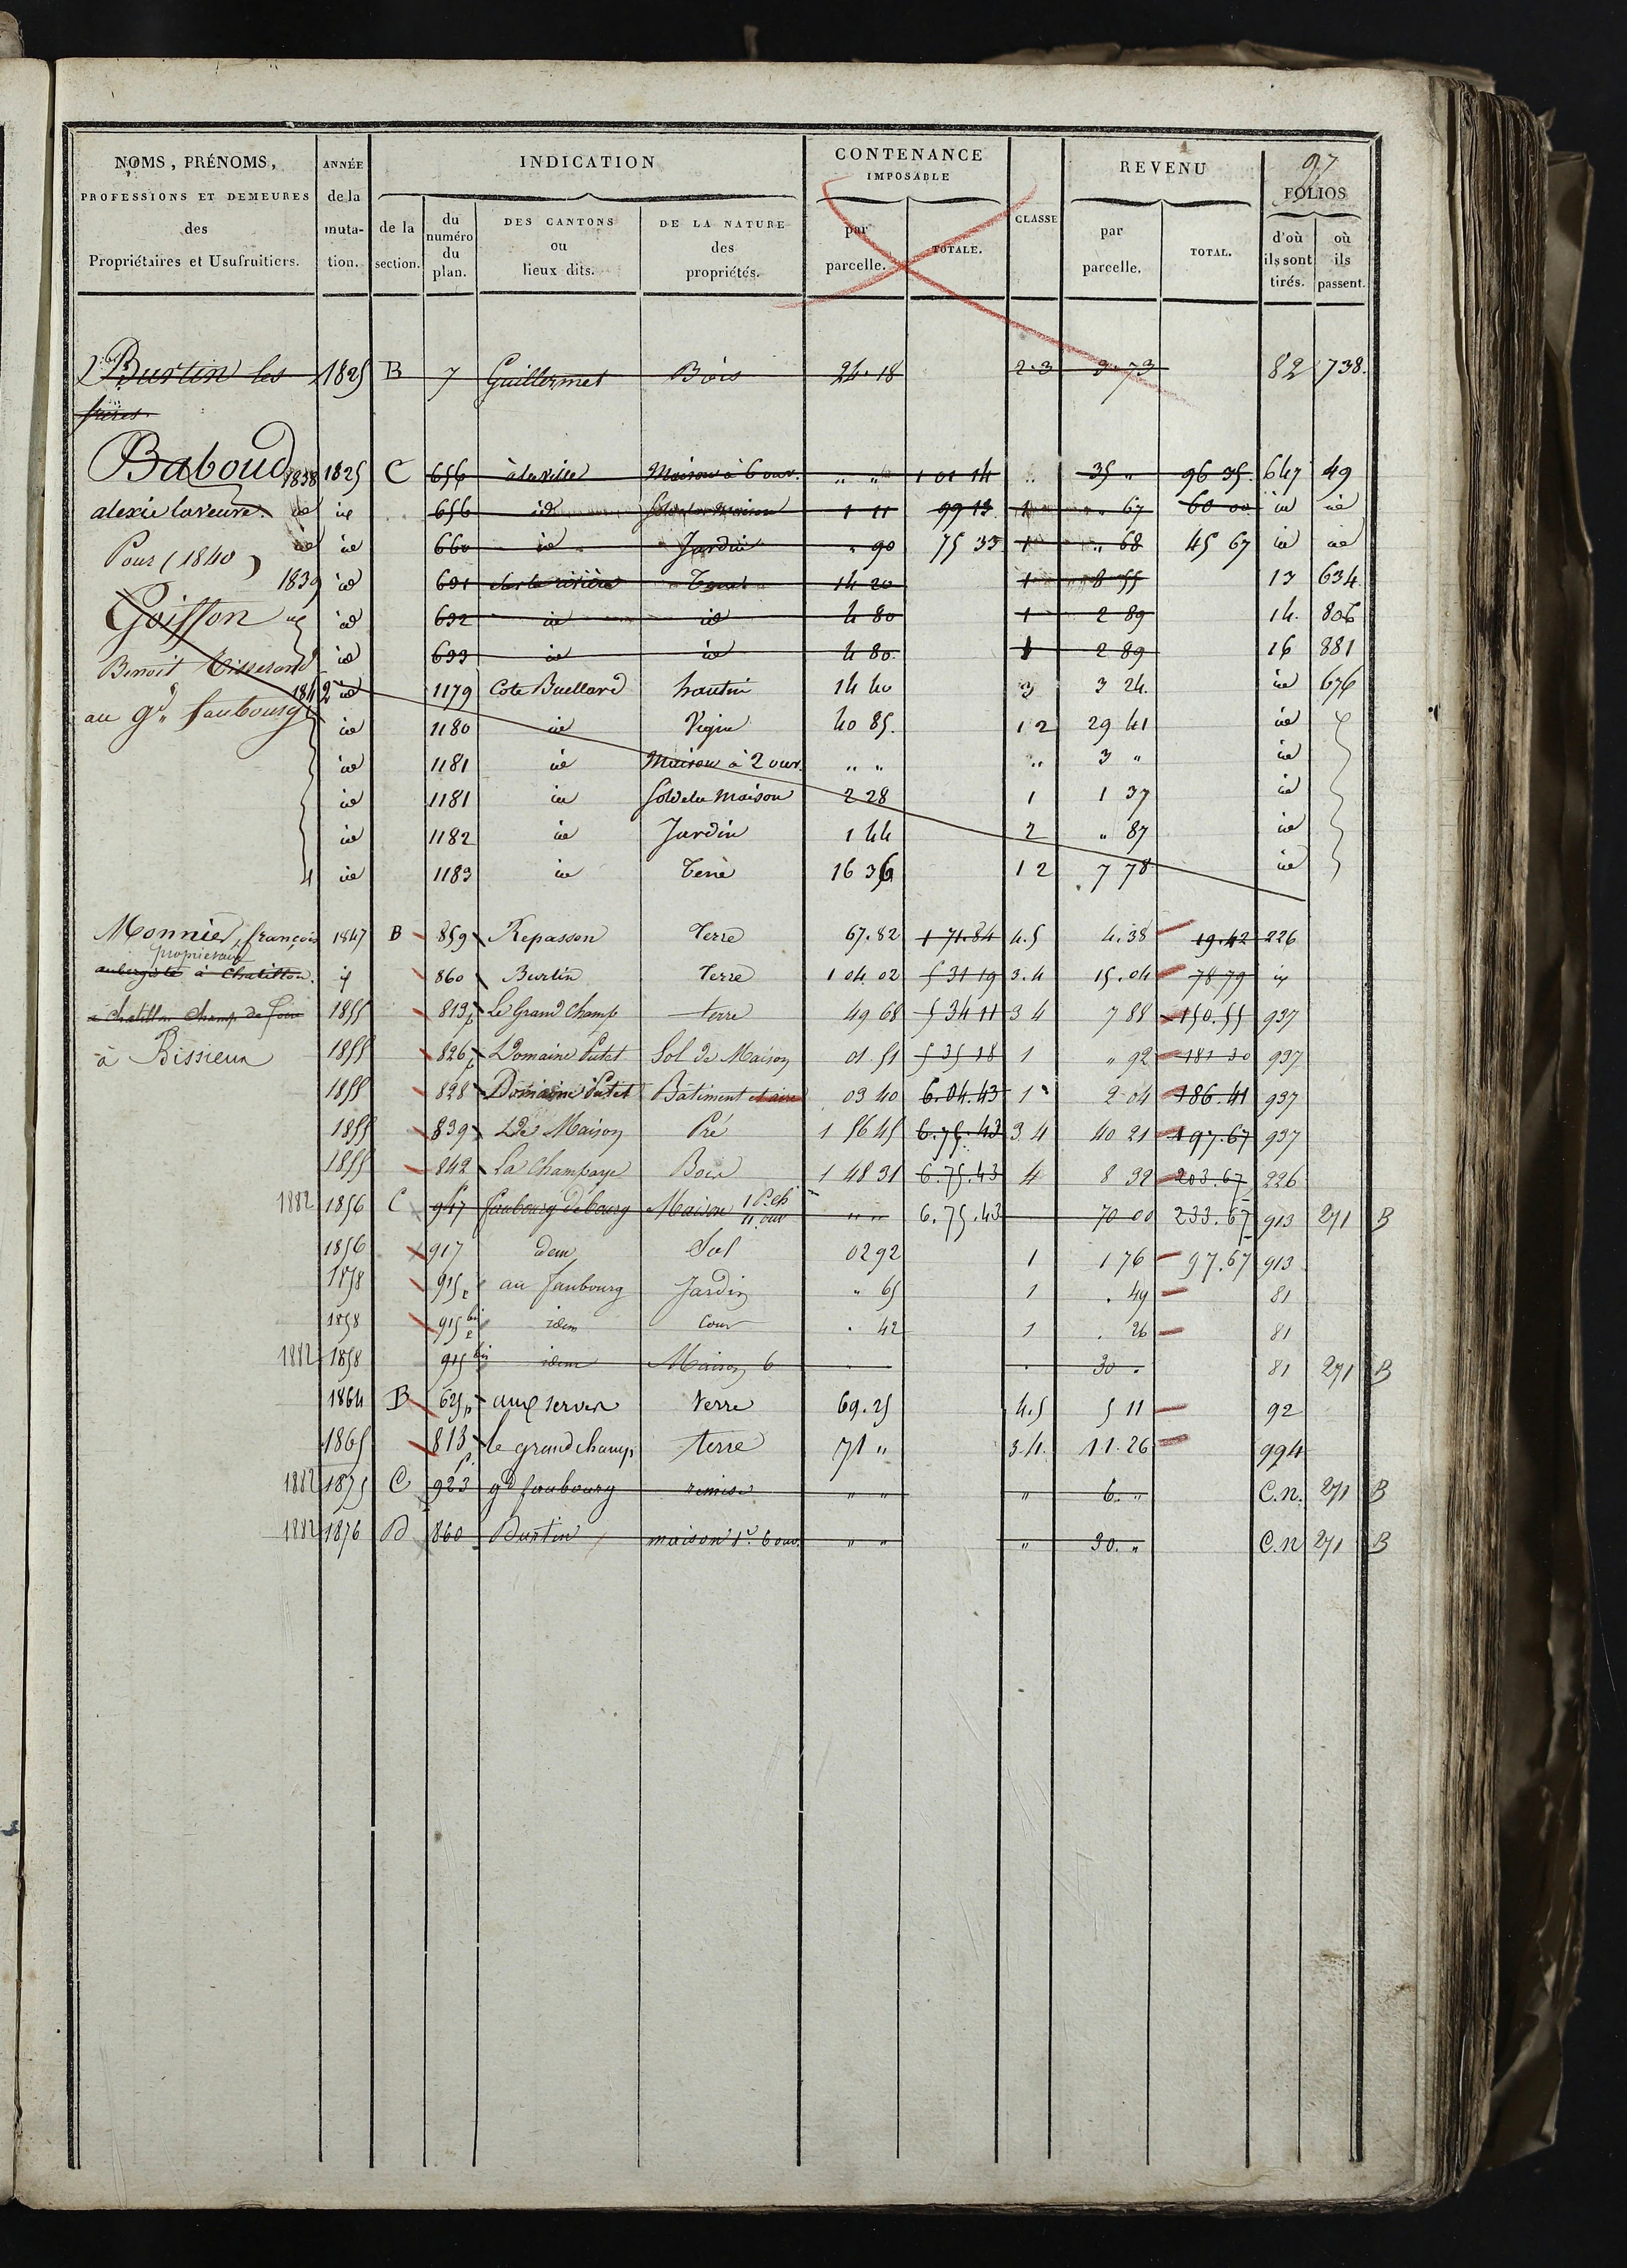 97
NOMS, PRÉNOMS, PROFESSIONS ET DEMEURES des Propriétaires et Usufruitiers. | ANNÉE de la muta-tion. | INDICATION | CONTENANCE IMPOSABLE | CLASSE | REVENU | FOLIOS
de la section. | du numéro du plan. | DES CANTONS ou lieux dits. | DE LA NATURE des propriétés. | par parcelle. | TOTALE. | par parcelle. | TOTAL. | d'où ils sont tirés. | où ils passent.
Burtin les 1825 B 7 Guillermet Bois 24.18 2.3 3.73 82 738.
frères.
Baboud 1838 1825 C 656 à la ville Maison à 6 ouv. " " 1 01 14 " 35 " 96 35. 647 49
alexie laveure. id id 656 id Sol de la Maison 1 11 99 13 1 " 67 60 00 id id
id id 660 id Jardin " 90 75 33 1 " 68 45 67 id id
Pour (1840)
1839 id 631 Terre 14 20 1 8 55 13 634
Goiffon id id 632 id id 4 80 1 2 89 14. 806
Benoit Tisserand id 633 id id 4 80 1 2 89 16 881
1842 id 1179 Cote Buellard hautin 14 40 3 3 24. id 676
au gd. faubourg id 1180 id Vigne 40 85. 1 2 29 41 id
id 1181 id Maison à 2 ouv. " " " 3 " id
id 1181 id Sol de la Maison 2 28 1 1 37 id
id 1182 id Jardin 1 44 2 " 87 id
id 1183 id Terre 16 36 1 2 7 78 id
Monnier, françois 1847 B 859 Repasson Terre 67.82 1 71.84 4.5 4.38 19.42 226
propriétaire
aubergiste à Chatillon. id 860 Burtin Terre 1 04.02 5 31 19 3.4 15.04 78 79 id
à chatillon Champ de foire 1855 813p Le Grand Champ terre 49 68 5 34 11 3 4 7 88 150.55 937
à Bissieux 1855 826p Domaine Putet Sol de Maison 01.51 5 35 18 1 " 92 181 30 937
1855 828 Domaine Putet Bâtiment et aire 03 40 6.04.43 1 2 04 186.41 937
1855 839 La Maison Pré 1 56 45 6.75.43 3 4 40 21 197.67 937
1855 842 La Champagne Bois 1 48 31 6.75.43 4 8 92 203.67 226
1882 1856 C 917 faubourg de bourg Maison 1 P. ch 11 ouv " " 6.75.43 70 00 233.67 913 271 B
1856 917 idem Sol 02 92 1 1 76 97.67 913
1858 915 au faubourg Jardin " 65 1 . 49 81
1858 915 bis idem Cour . 42 1 . 26 81
1882 1858 915 bis idem Maison 6 30 . 81 271 B
1864 B 625p aux serves Terre 69.25 4.5 5 11 92
1865 813 p. le grand champ terre 71 " 3.4. 11.26 994
1882 1875 C 923 gd faubourg remise " " " 6. " C.n. 271 B
1882 1876 B 860 Burtin maison 1re 6 ouv. " " " 30. " C.n 271 B